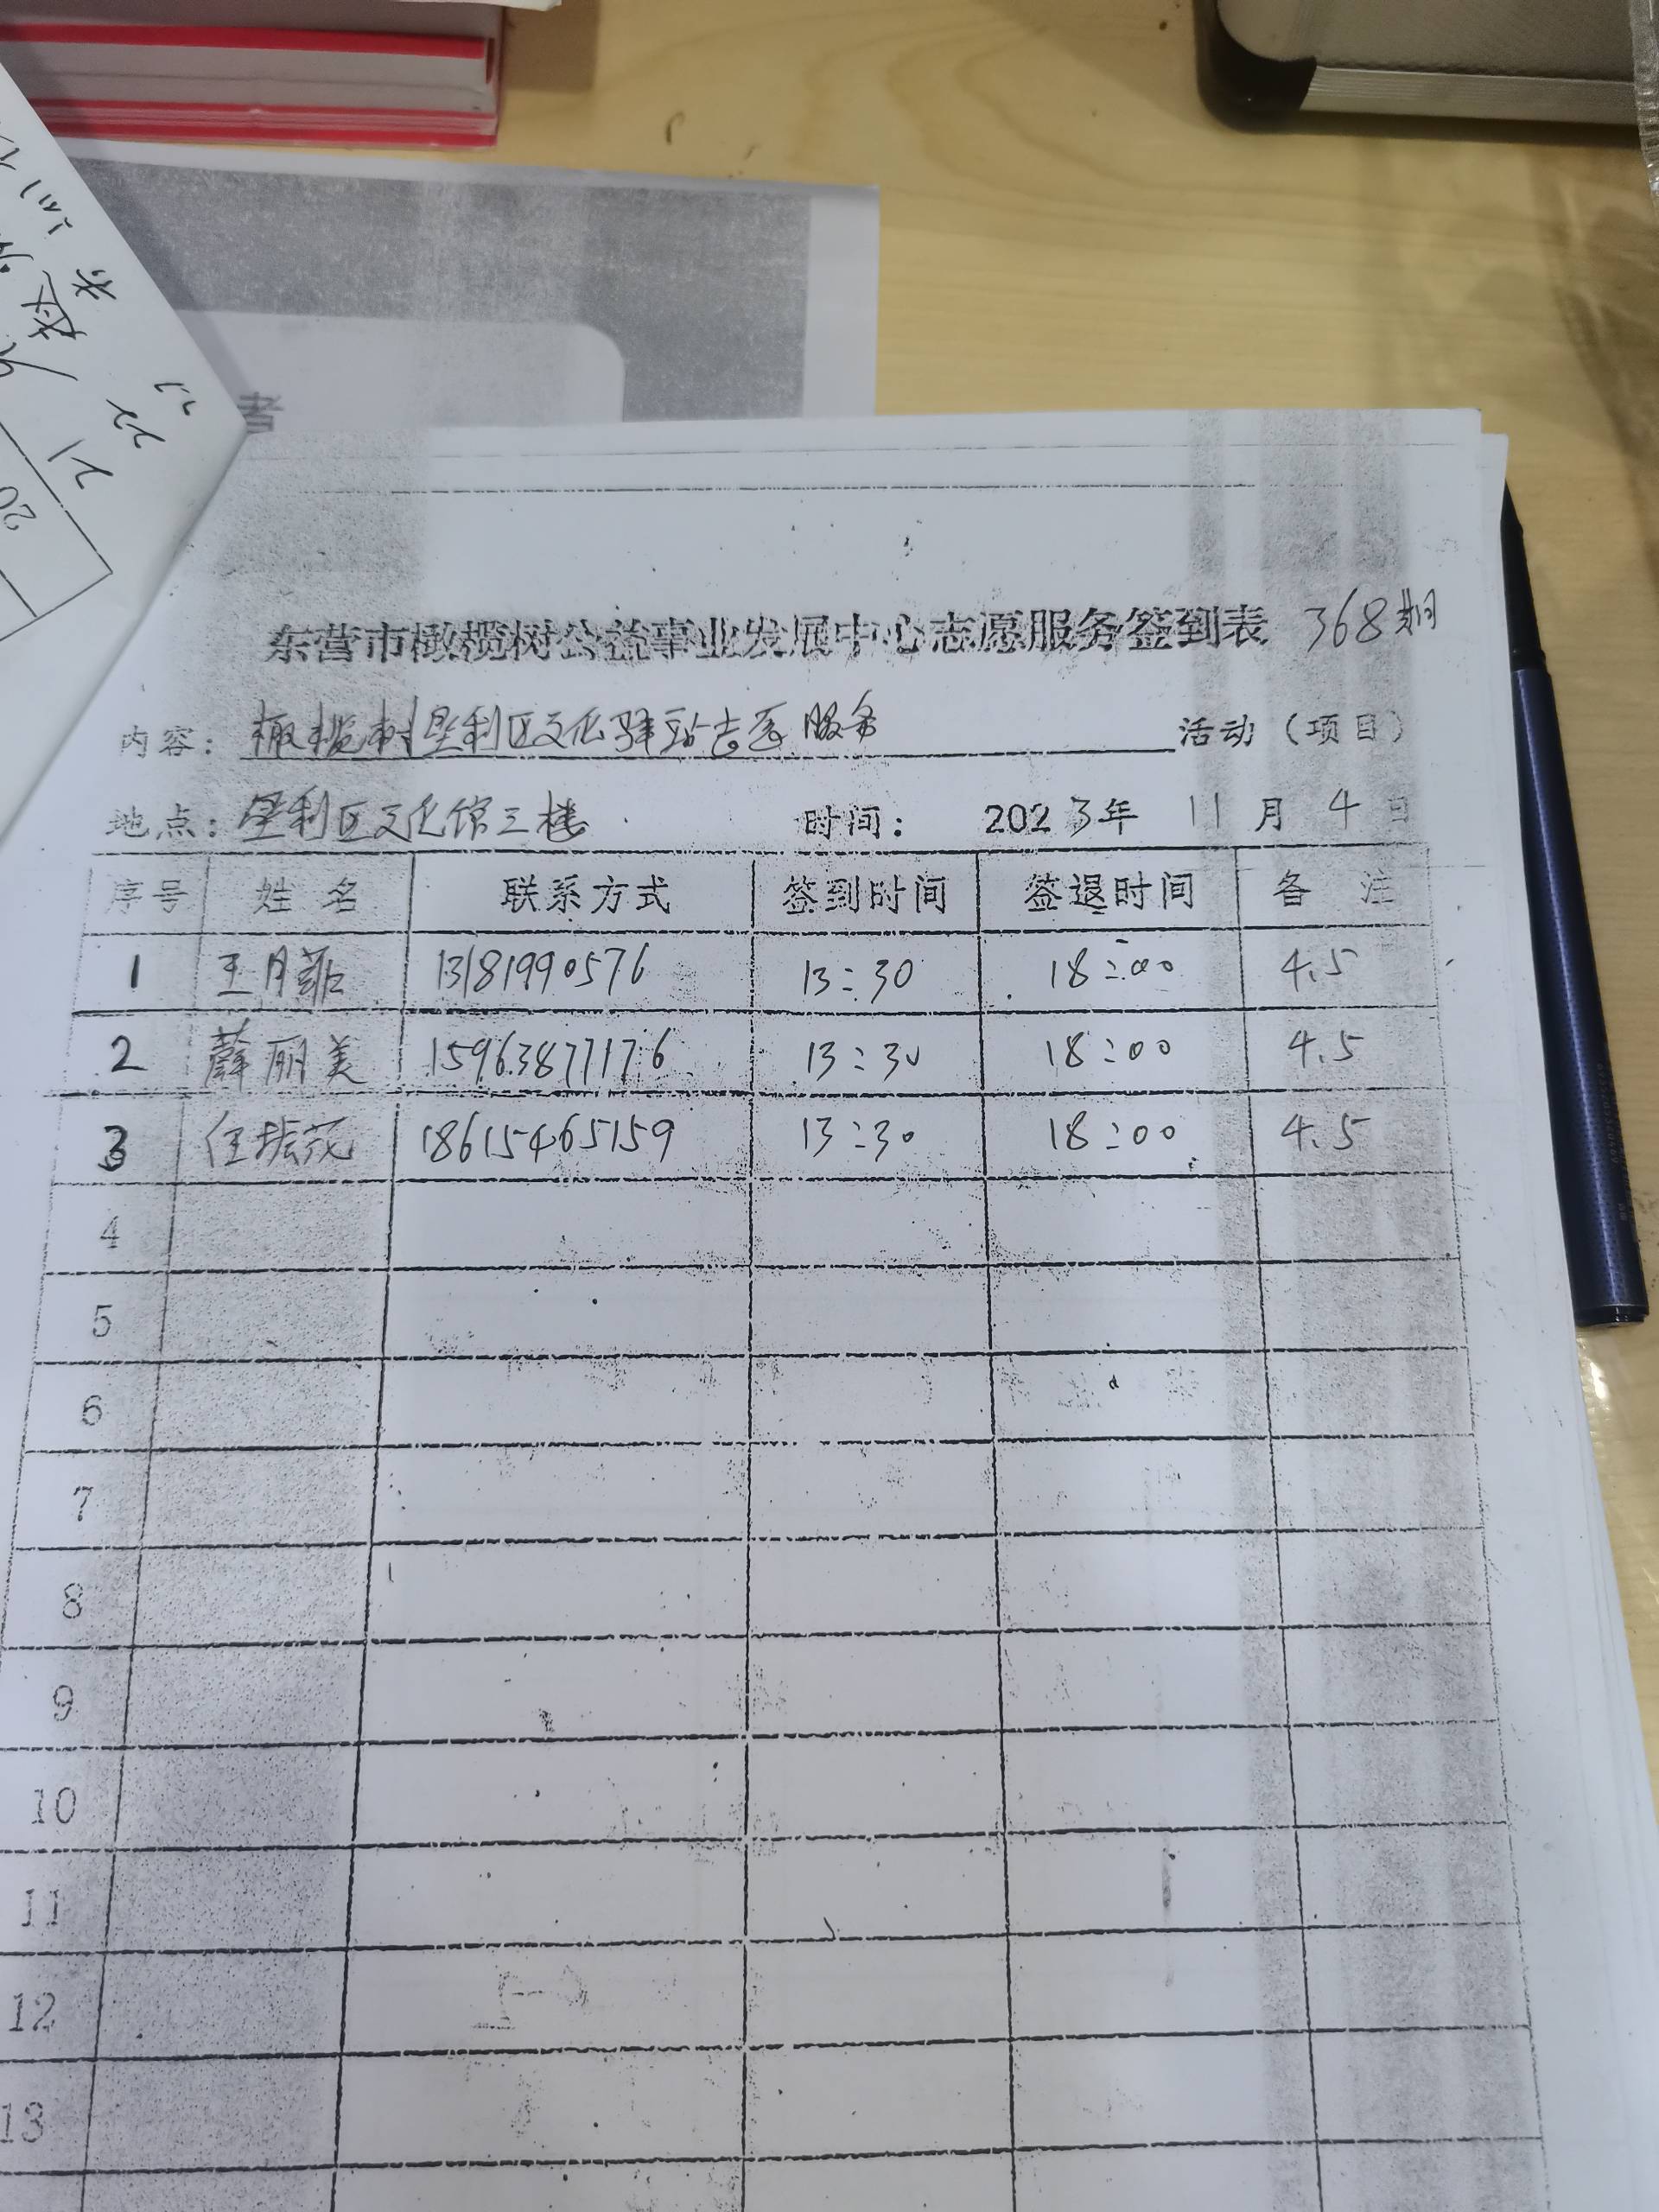 东营市橄榄树公益事业发展中心志愿服务签到表 368期
内容: 橄榄树垦利区文化驿站志愿服务 活动（项目）
地点: 垦利区文化馆三楼 时间: 2023年 11月 4日
序号 姓名 联系方式 签到时间 签退时间 备注
1 王月 13181990576 13:30 18:00 4.5
2 薛丽美 15963877176 13:30 18:00 4.5
3 任振茂 18615465159 13:30 18:00 4.5
4
5
6
7
8
9
10
11
12
13